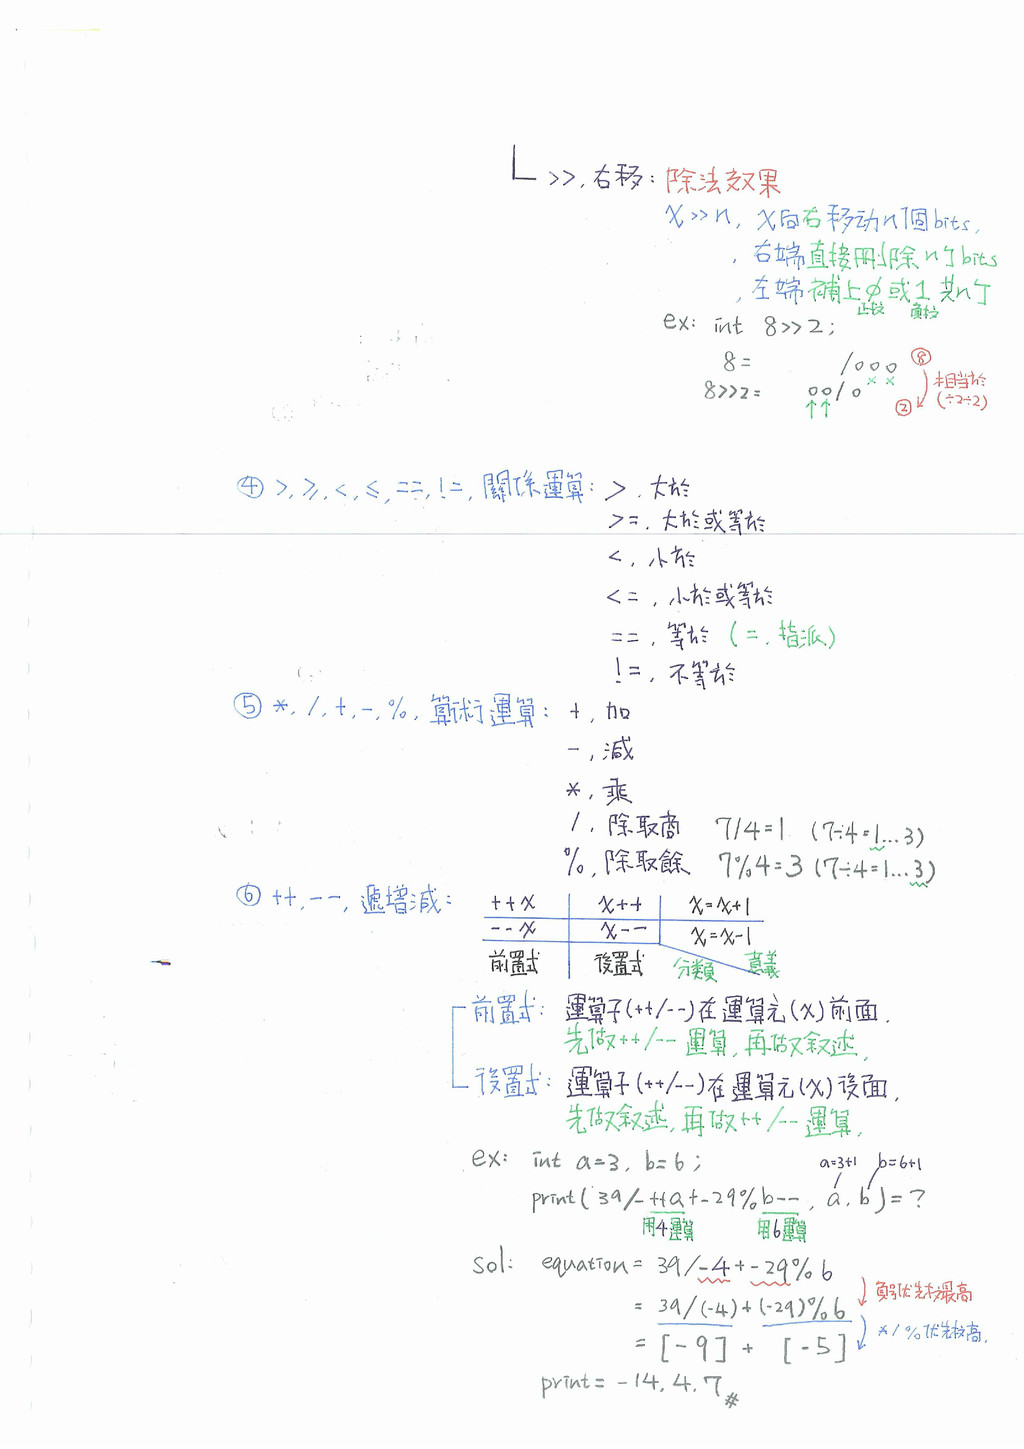 >>, 右移: 除法效果
x>>n, x向右移动n個bits,
, 右端直接刪除n个bits
, 左端補上0或1 共n个
正数 負数
ex: int 8>>2;
8= 1000 ⑧
8>>2= 0010 ② 相當於(÷2÷2)
④ >, ≥, <, ≤, ==, !=, 關係運算: >, 大於
>=, 大於或等於
<, 小於
<=, 小於或等於
==, 等於 (=, 指派)
!=, 不等於
⑤ *, /, +, -, %, 算術運算: +, 加
-, 減
*, 乘
/, 除取商 7/4=1 (7÷4=1...3)
%, 除取餘 7%4=3 (7÷4=1...3)
⑥ ++, --, 遞增減: ++x x++ x=x+1
--x x-- x=x-1
前置式 後置式 分類 意義
前置式: 運算子(++/--)在運算元(x)前面,
先做++/--運算, 再做叙述,
後置式: 運算子(++/--)在運算元(x)後面,
先做叙述, 再做++/--運算,
ex: int a=3, b=6; a=3+1 b=6+1
print(39/-++a+-29%b--, a, b)=?
用4運算 用6運算
sol: equation= 39/-4+-29%6
= 39/(-4)+(-29)%6 負号优先权最高
= [-9] + [-5] */%优先权高,
print= -14, 4, 7 #